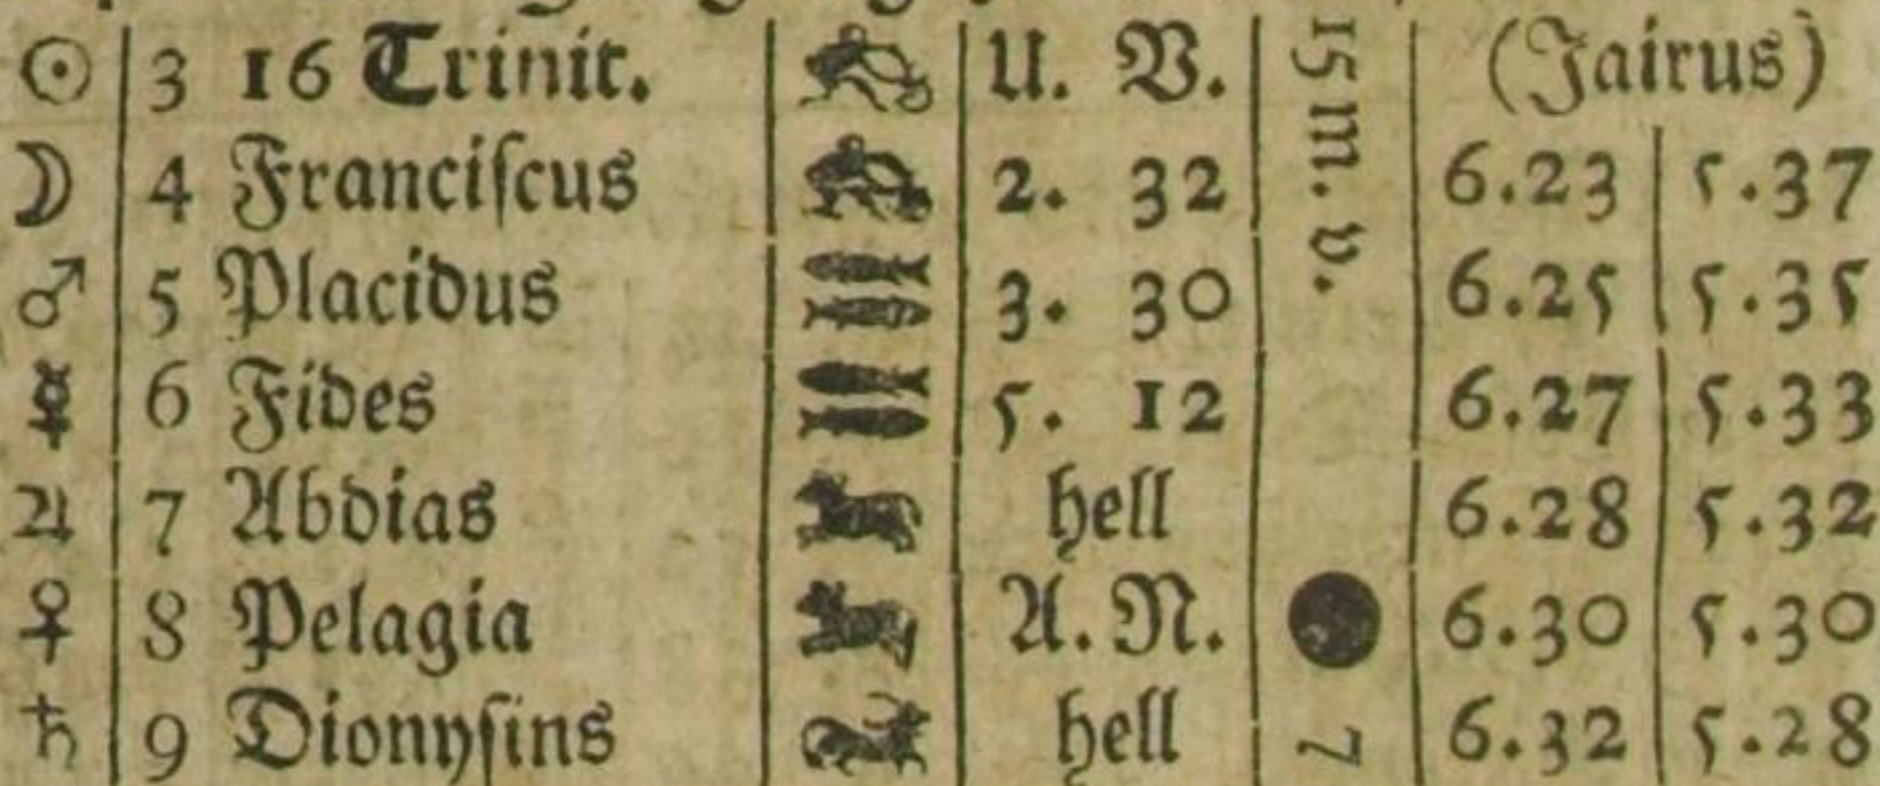 ☉ 3 16 Trinit. U. V. (Jairus)
☽ 4 Franciſcus 2. 32 6.23 5.37
♂ 5 Placidus 3. 30 6.25 5.35
☿ 6 Fides 5. 12 6.27 5.33
♃ 7 Abdias hell 6.28 5.32
♀ 8 Pelagia A. N. 6.30 5.30
♄ 9 Dionyſins hell 7 6.32 5.28
15 m. v.